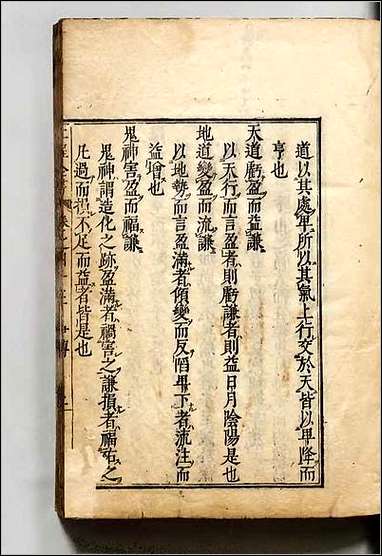 道以其處卑所以其氣上行交於天皆以卑降而
亨也
天道虧盈而益謙
以天行而言盈者則虧謙者則益日月陰陽是也
地道變盈而流謙
以地勢而言盈滿者傾變而反陷卑下者流注而
益增也
鬼神害盈而福謙
鬼神謂造化之跡盈滿者禍害之謙損者福祐之
凡過而損不足而益者皆是也